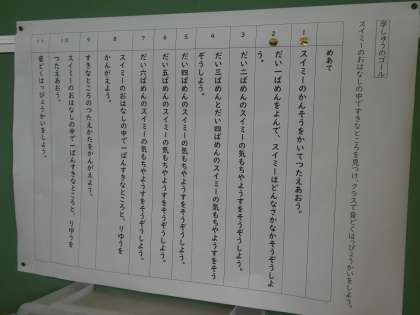 学しゅうのゴール
スイミーのおはなしの中ですきなところを見つけ、クラスで音どくはっぴょうかいをしよう。
めあて
1
スイミーのかんそうをかいてつたえあおう。
2
だい一ばめんをよんで、スイミーはどんなさかなかそうぞうしよ
う。
3
だい二ばめんのスイミーの気もちやようすをそうぞうしよう。
4
だい三ばめんとだい四ばめんのスイミーの気もちやようすをそう
ぞうしよう。
5
だい四ばめんのスイミーの気もちやようすをそうぞうしよう。
6
だい五ばめんのスイミーの気もちやようすをそうぞうしよう。
7
だい六ばめんのスイミーの気もちやようすをそうぞうしよう。
8
スイミーのおはなしの中で一ばんすきなところと、りゆうを
かんがえよう。
9
すきなところのつたえかたをかんがえよう。
10
スイミーのおはなしの中で一ばんすきなところと、りゆうを
つたえあおう。
11
音どくはっぴょうかいをしよう。